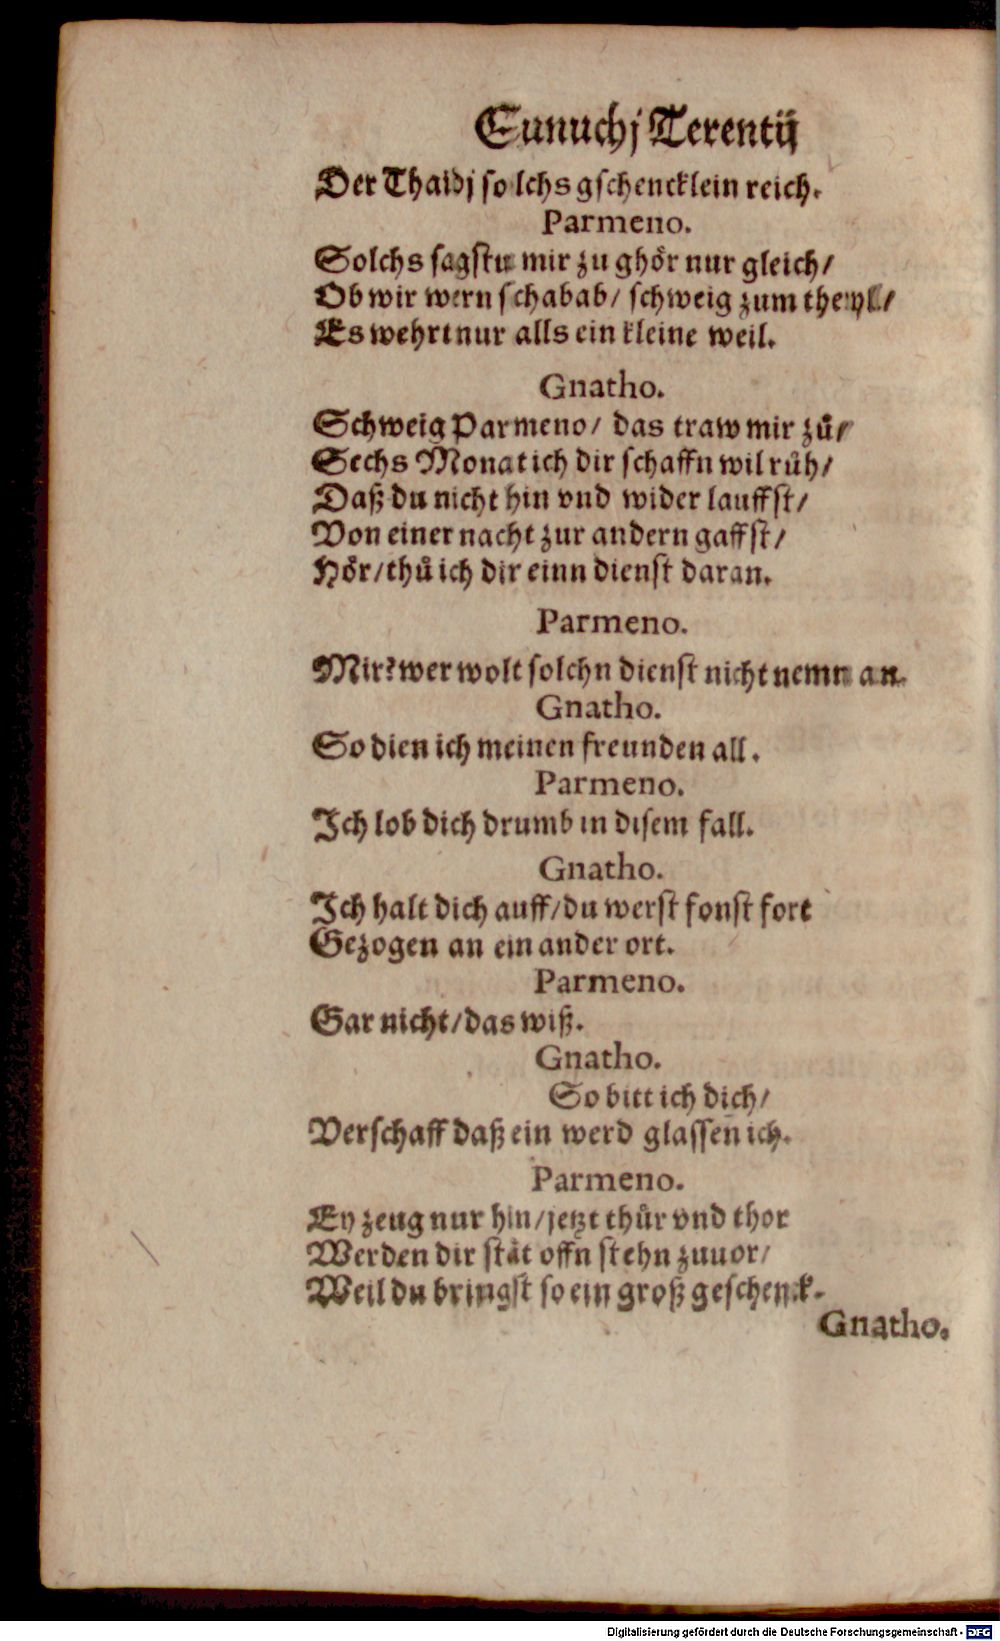 Eunuchj Terentij
Der Thaidj solchs gschencklein reich.
Parmeno.
Solchs sagstu mir zu ghoͤr nur gleich/
Ob wir wern schabab/ schweig zum theyl/
Es wehrt nur alls ein kleine weil.
Gnatho.
Schweig Parmeno/ das traw mir zuͦ/
Sechs Monat ich dir schaffn wil ruͦh/
Daß du nicht hin vnd wider lauffst/
Von einer nacht zur andern gaffst/
Hoͤr/thuͦ ich dir einn dienst daran.
Parmeno.
Mir? wer wolt solchn dienst nicht nemn an.
Gnatho.
So dien ich meinen freunden all.
Parmeno.
Ich lob dich drumb in disem fall.
Gnatho.
Ich halt dich auff/du werst sonst fort
Gezogen an ein ander ort.
Parmeno.
Gar nicht/das wiß.
Gnatho.
So bitt ich dich/
Verschaff daß ein werd glassen ich.
Parmeno.
Ey zeug nur hin/jetzt thuͤr vnd thor
Werden dir staͤt offn stehn zuuor/
Weil du bringst so ein groß geschenck.
Gnatho.
Digitalisierung gefördert durch die Deutsche Forschungsgemeinschaft - DFG